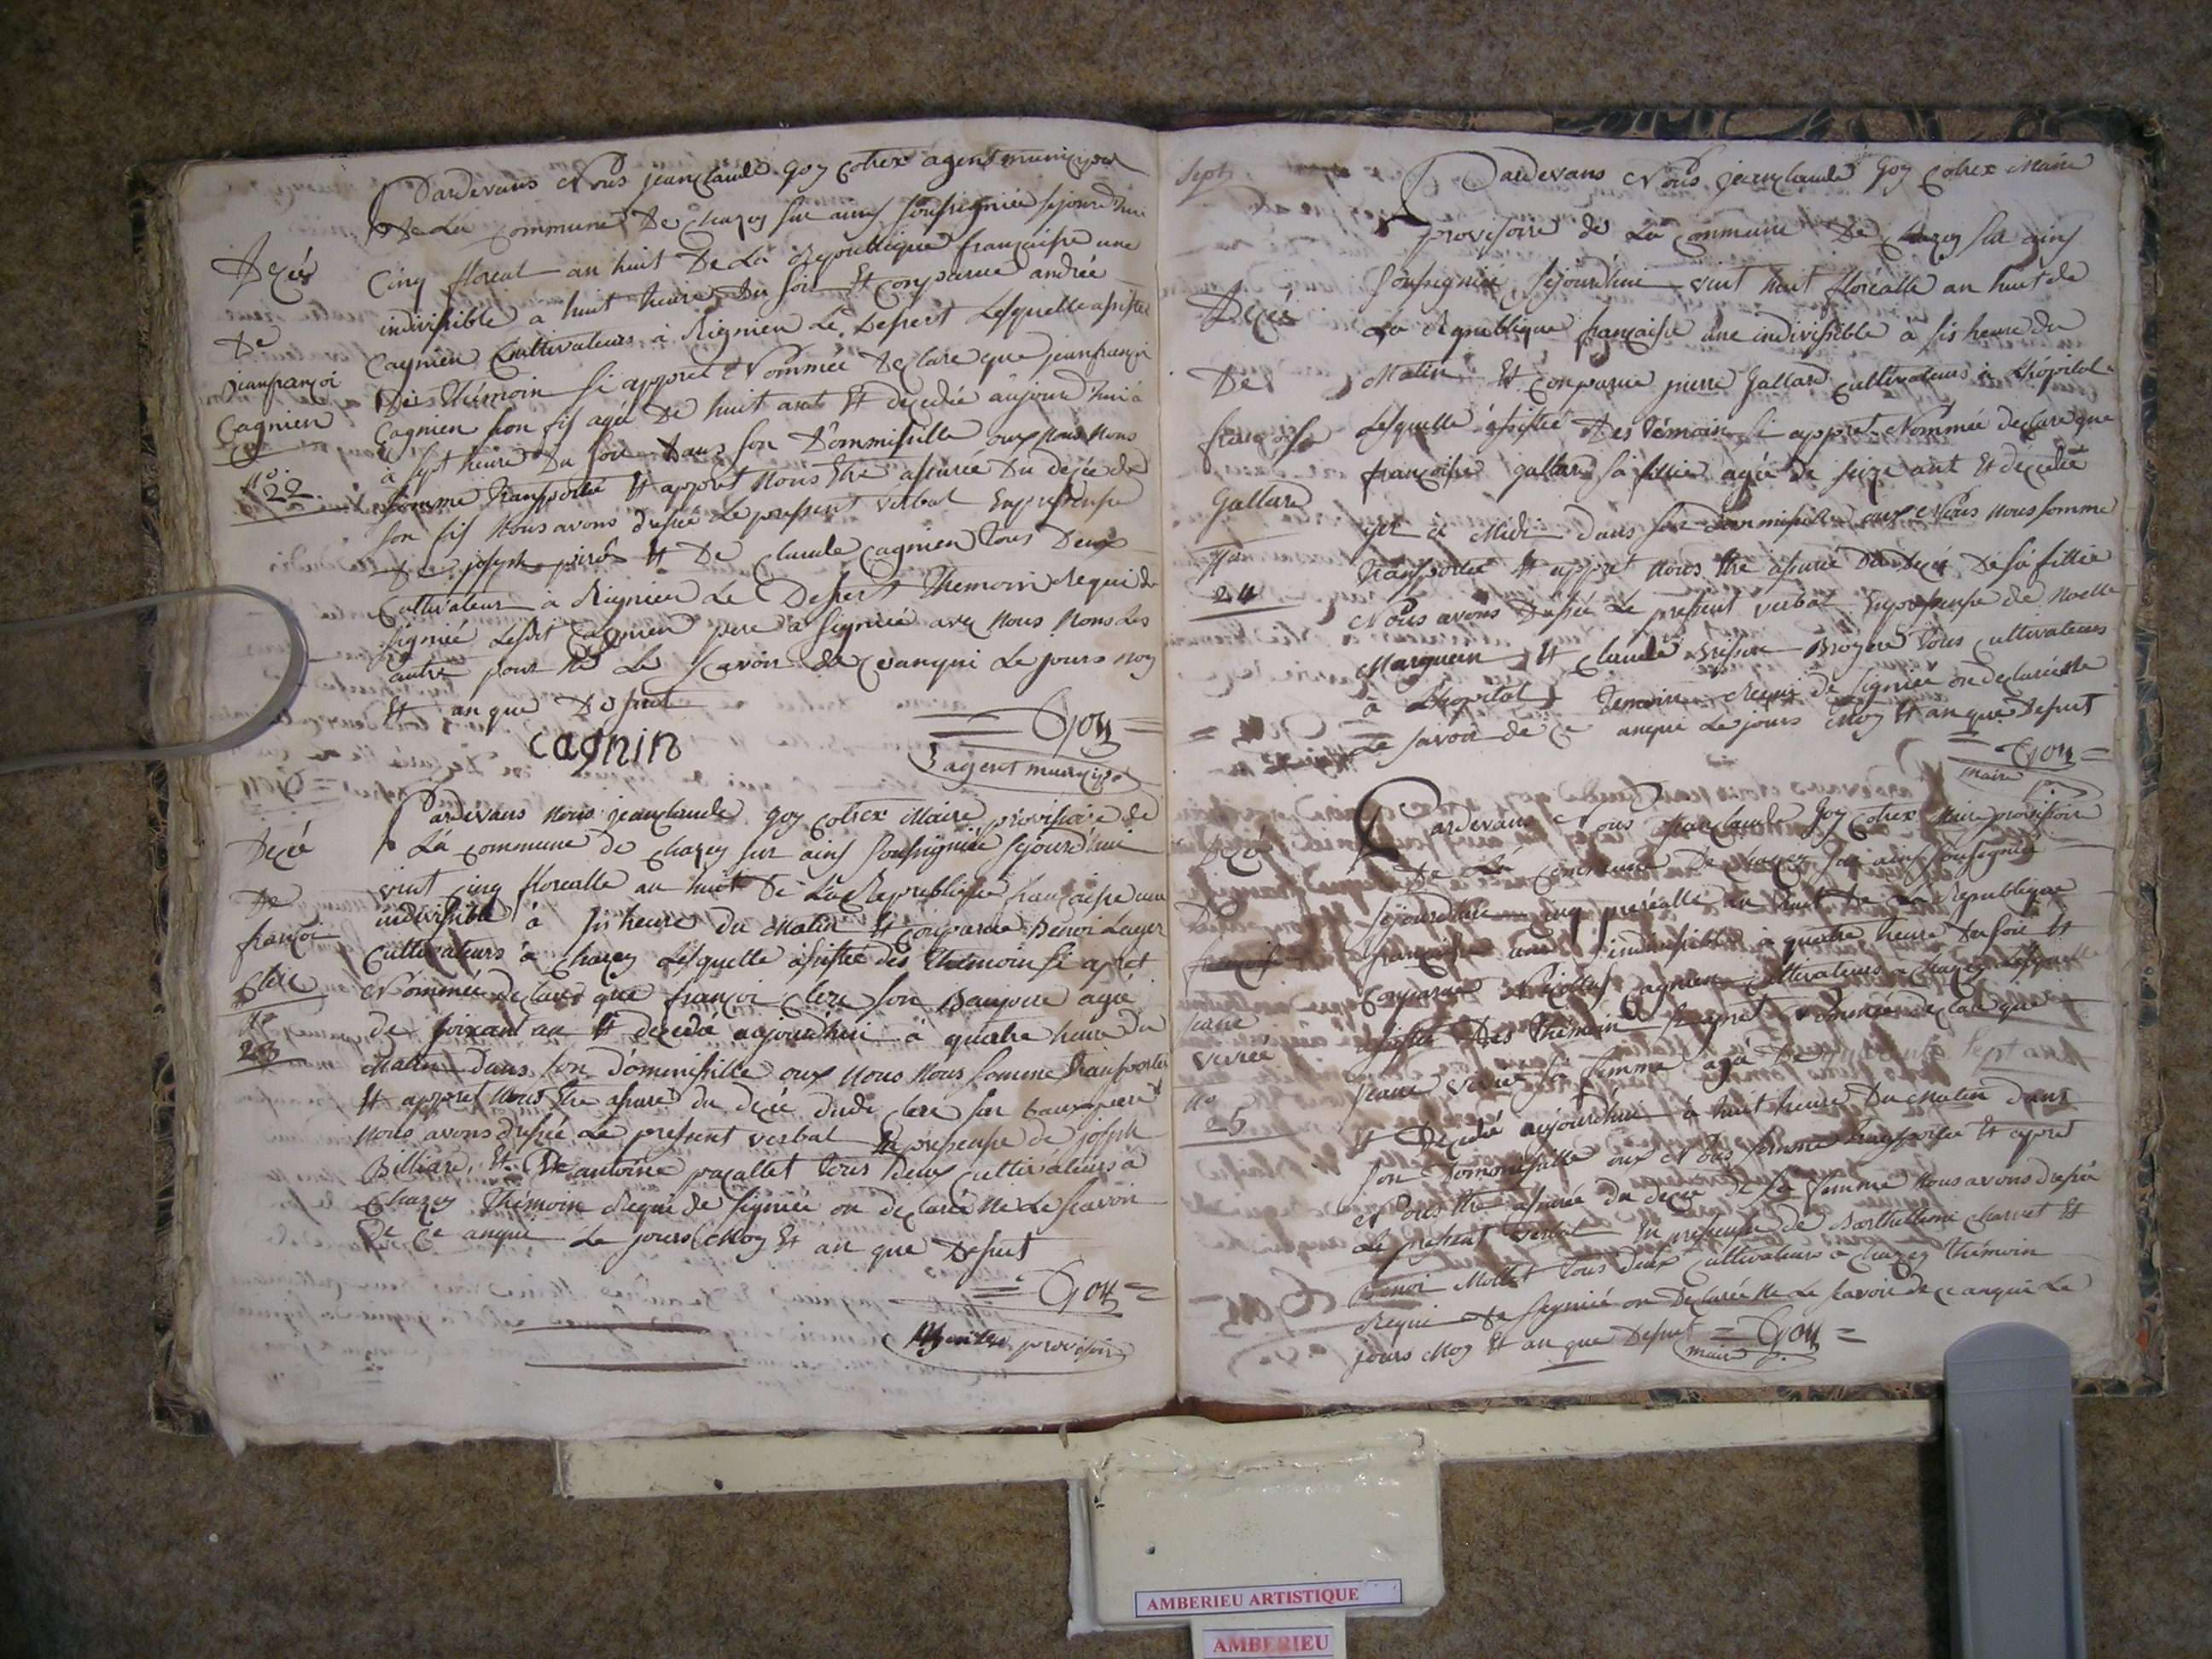 Pardevans Nous jeanclaude Goy cotrex agent municipal
De La Commune De chazey sur ains soussigniée sejourd'hui
Cinq floreal an huit De La Republique françaisse une
indivissible a huit heure Du soir Et conparue andrée
Cagnien Cultivateurs à Rignieu Le Dessert Lesquelle assistée
Des thémoin si appret Nommée Declare que jeanfrançoi
Cagnien son fis agée De huit ant Et decedée aujourd'hui à
à sept heure Du soir Dans son Dommissille oux nous nous
somme transportée Et appret nous Etre assurée Du decée de
son fis nous avons dressée Le pressent verbal En pressensse
De joseph Et De claude Cagnien tous Deux
Cultivateur à Rignieu Le Dessert themoin Requi de
signiée Lesdit Cagnien pere a signiée avec nous nons Les
autre pour ne Le scavoir de ce anqui Le jours moy
Et an que Dessut
cagnin
= Goy =
agent municipal
Decés
De
jeanfrançoi
Cagnien
No.
22
Pardevans nous jeanclaude goy cotrex Maire provissoire de
La commune de chazey sur ains soussigniée sejourd'hui
vint cinq florealle an huit De La Republique francaisse une
indivissible à sis heure du Matin Et conparue Benoi Layer
Cultivateurs à chazey Lesquelle assistée des themoin si apret
Nommée Declare que françoi clere son Baupere agée
de soixant an Et decedée aujourd'hui à quatre heure du
Matin dans son domissille oux nous nous somme transportée
Et appret nous Etre assurée du decée dudi clere son baupere
nous avons dressée Le pressent verbal En pressensse de joseph
Billiard Et De antoine pacallet tous deux cultivateurs à
Chazey Thémoin Requi de signiée on declarée ne Le scavoir
De ce anqui Le jours Moy Et an que Dessut
= Goy =
provissoir
Decée
De
françoi
Clere
No
23
Sept
Pardevans Nous jeanclaude Goy cotrex Maire
provissoire de La Commune De chazey sur ains
soussigniée sejourd'hui vint huit floréalle an huit de
La Republique françaisse une indivissible à sis heure du
Matin Et conparue pierre Gallard cultivateurs à Lhôpital
Lesquelle assistée Des témoin si appret Nommée declare que
françoisse gallard sa fillie agée de seize ant Et decedée
yer à Midi dans son dommissille oux Nous nous somme
transportée Et appret nous Etre assurée Du decée De sa fillie
Nous avons Dressée Le pressent verbal En pressensse de Noelle
Marguein Et claude Broyere tous cultivateurs
à Lhopital Temoin Requis de signiée on declarée ne
Le savoir de ce anqui Le jours Moy Et an que Dessut
= Goy =
maire p.
Decés
De
françoisse
Gallard
No
24
Pardevans Nous jeanclaude Goy cotrex Maire provissoire
De La Commune De chazey sur ains soussigniée
sejourd'hui cinq preréalle an huit De La Republique
françaisse une indivissible à quatre heure du soir Et
conparue Nicollas Cagnien cultivateurs a chazey Lesquelle
assistée Des thémoin si apret Nommée declare que
jeane verrée sa femme agée De
Et Decedée aujourdhui à huit heure Du Matin dans
son Domonissille oux Nous somme transportée Et apret
Nous Etre assurée du decée de sa femme nous avons dressée
Le pressent verbal En pressensse de Barthellemi charvet Et
Benoi Mollet tous deux cultivateurs a chazey thémoin
Requi De signiée on Declarée ne Le scavoir de ce anqui Le
jours Moy Et an que Dessut = Goy =
maire p.
Decé
De
jeane
verrée
No
25
AMBERIEU ARTISTIQUE
AMBERIEU